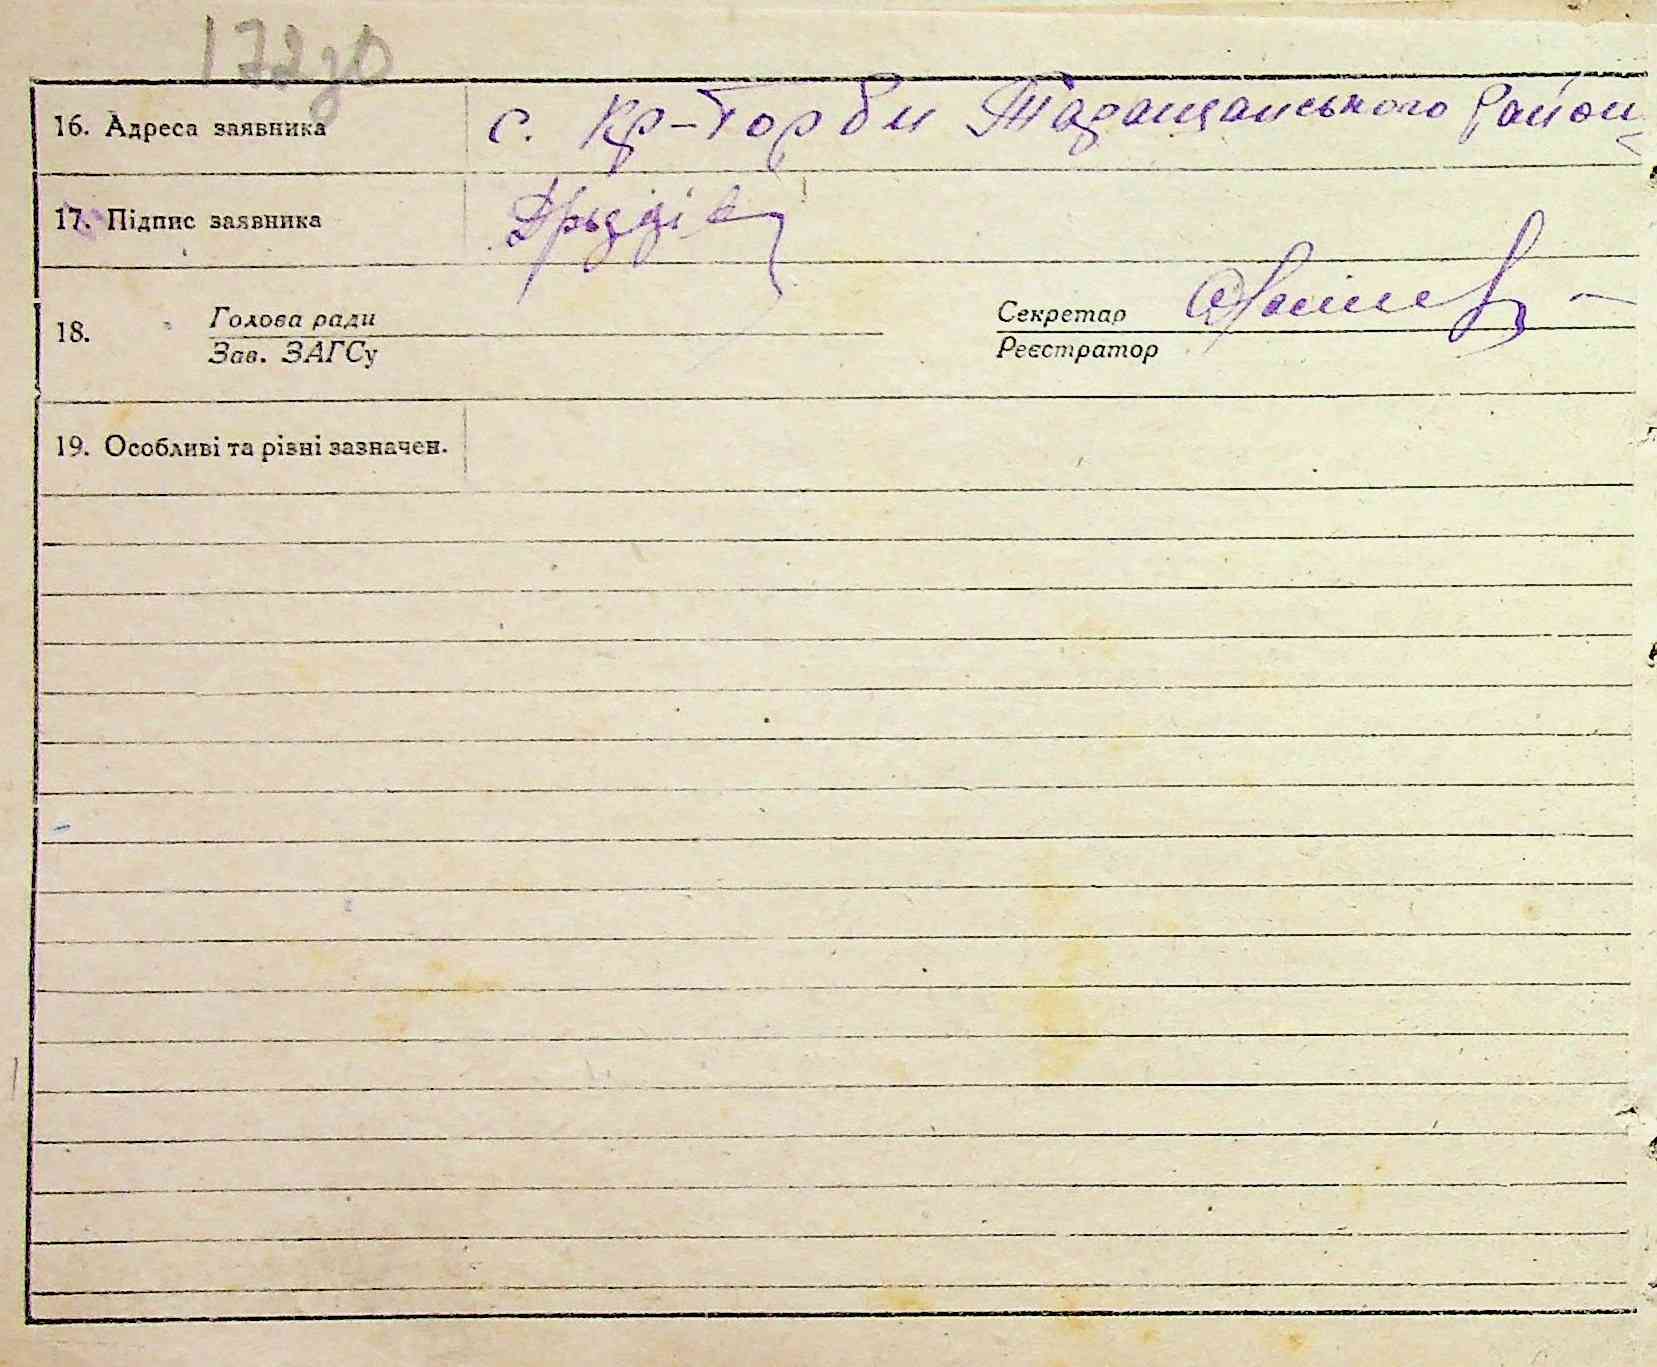 172
16. Адреса заявника с. Кр-Горби Таращанського Район
17. Підпис заявника
18. Голова ради Секретар
Зав. ЗАГСу Реєстратор
19. Особливі та різні зазначен.